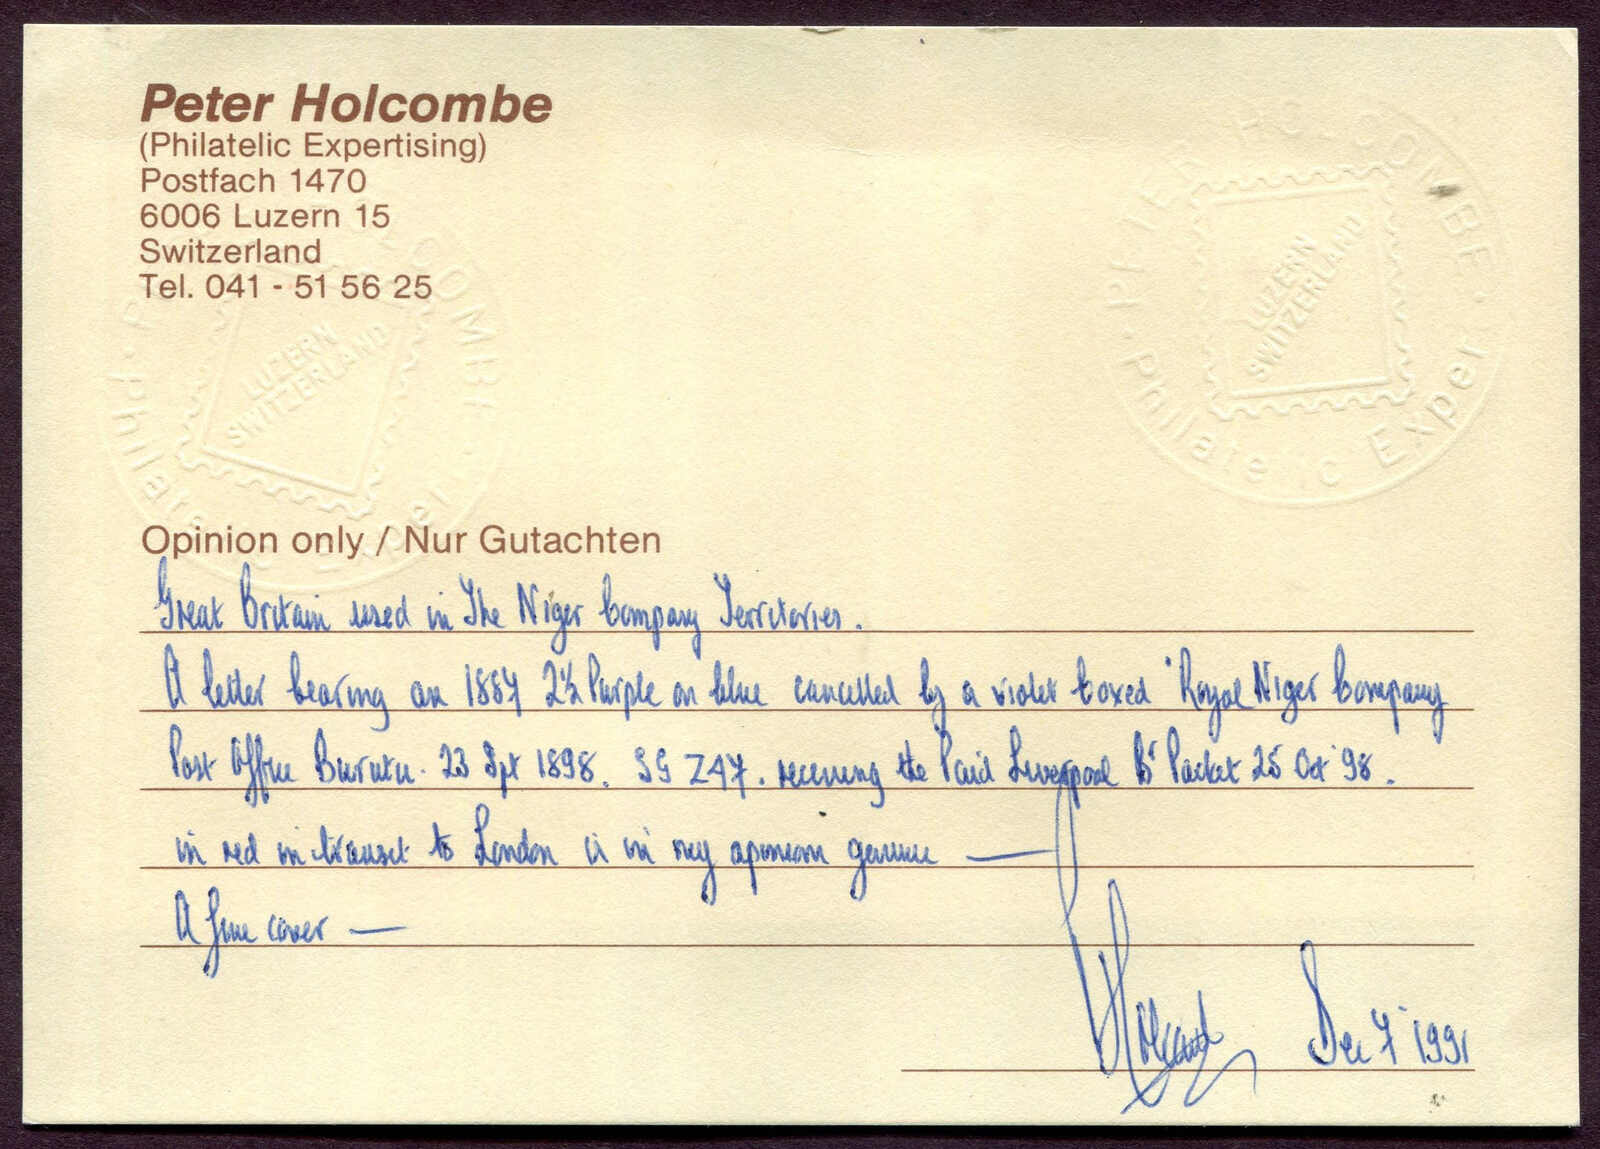 Peter Holcombe
(Philatelic Expertising)
Postfach 1470
6006 Luzern 15
Switzerland
Tel. 041 - 51 56 25
PETER HOLCOMBE · Philatelic Expert ·
LUZERN
SWITZERLAND
PETER HOLCOMBE · Philatelic Expert ·
LUZERN
SWITZERLAND
Opinion only / Nur Gutachten
Great Britain used in The Niger Company Territories.
A letter bearing an 1887 2½ Purple on blue cancelled by a violet boxed "Royal Niger Company
Post Office Burutu. 23 Spt 1898. SG Z47. receiving the Paid Liverpool Br Packet 25 Oct 98.
in red in transit to London is in my opinion genuine —
A fine cover —
Holcombe Dec 7 1991